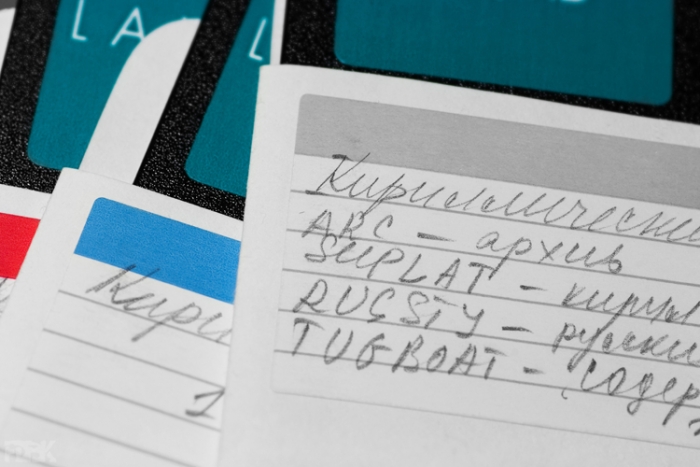 LA
L
Кириллически
ARC - архив
SUPLAT - кирил
RUCSTY - русски
TUGBOAT - содер
Кири
1